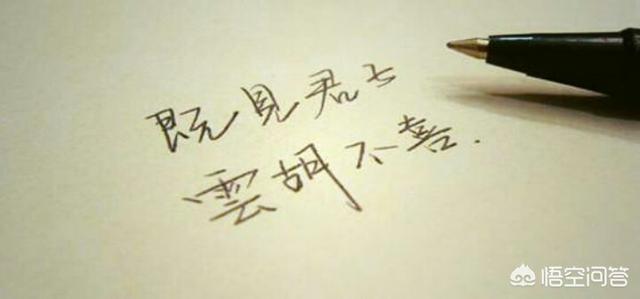 既見君子
雲胡不喜.
悟空问答